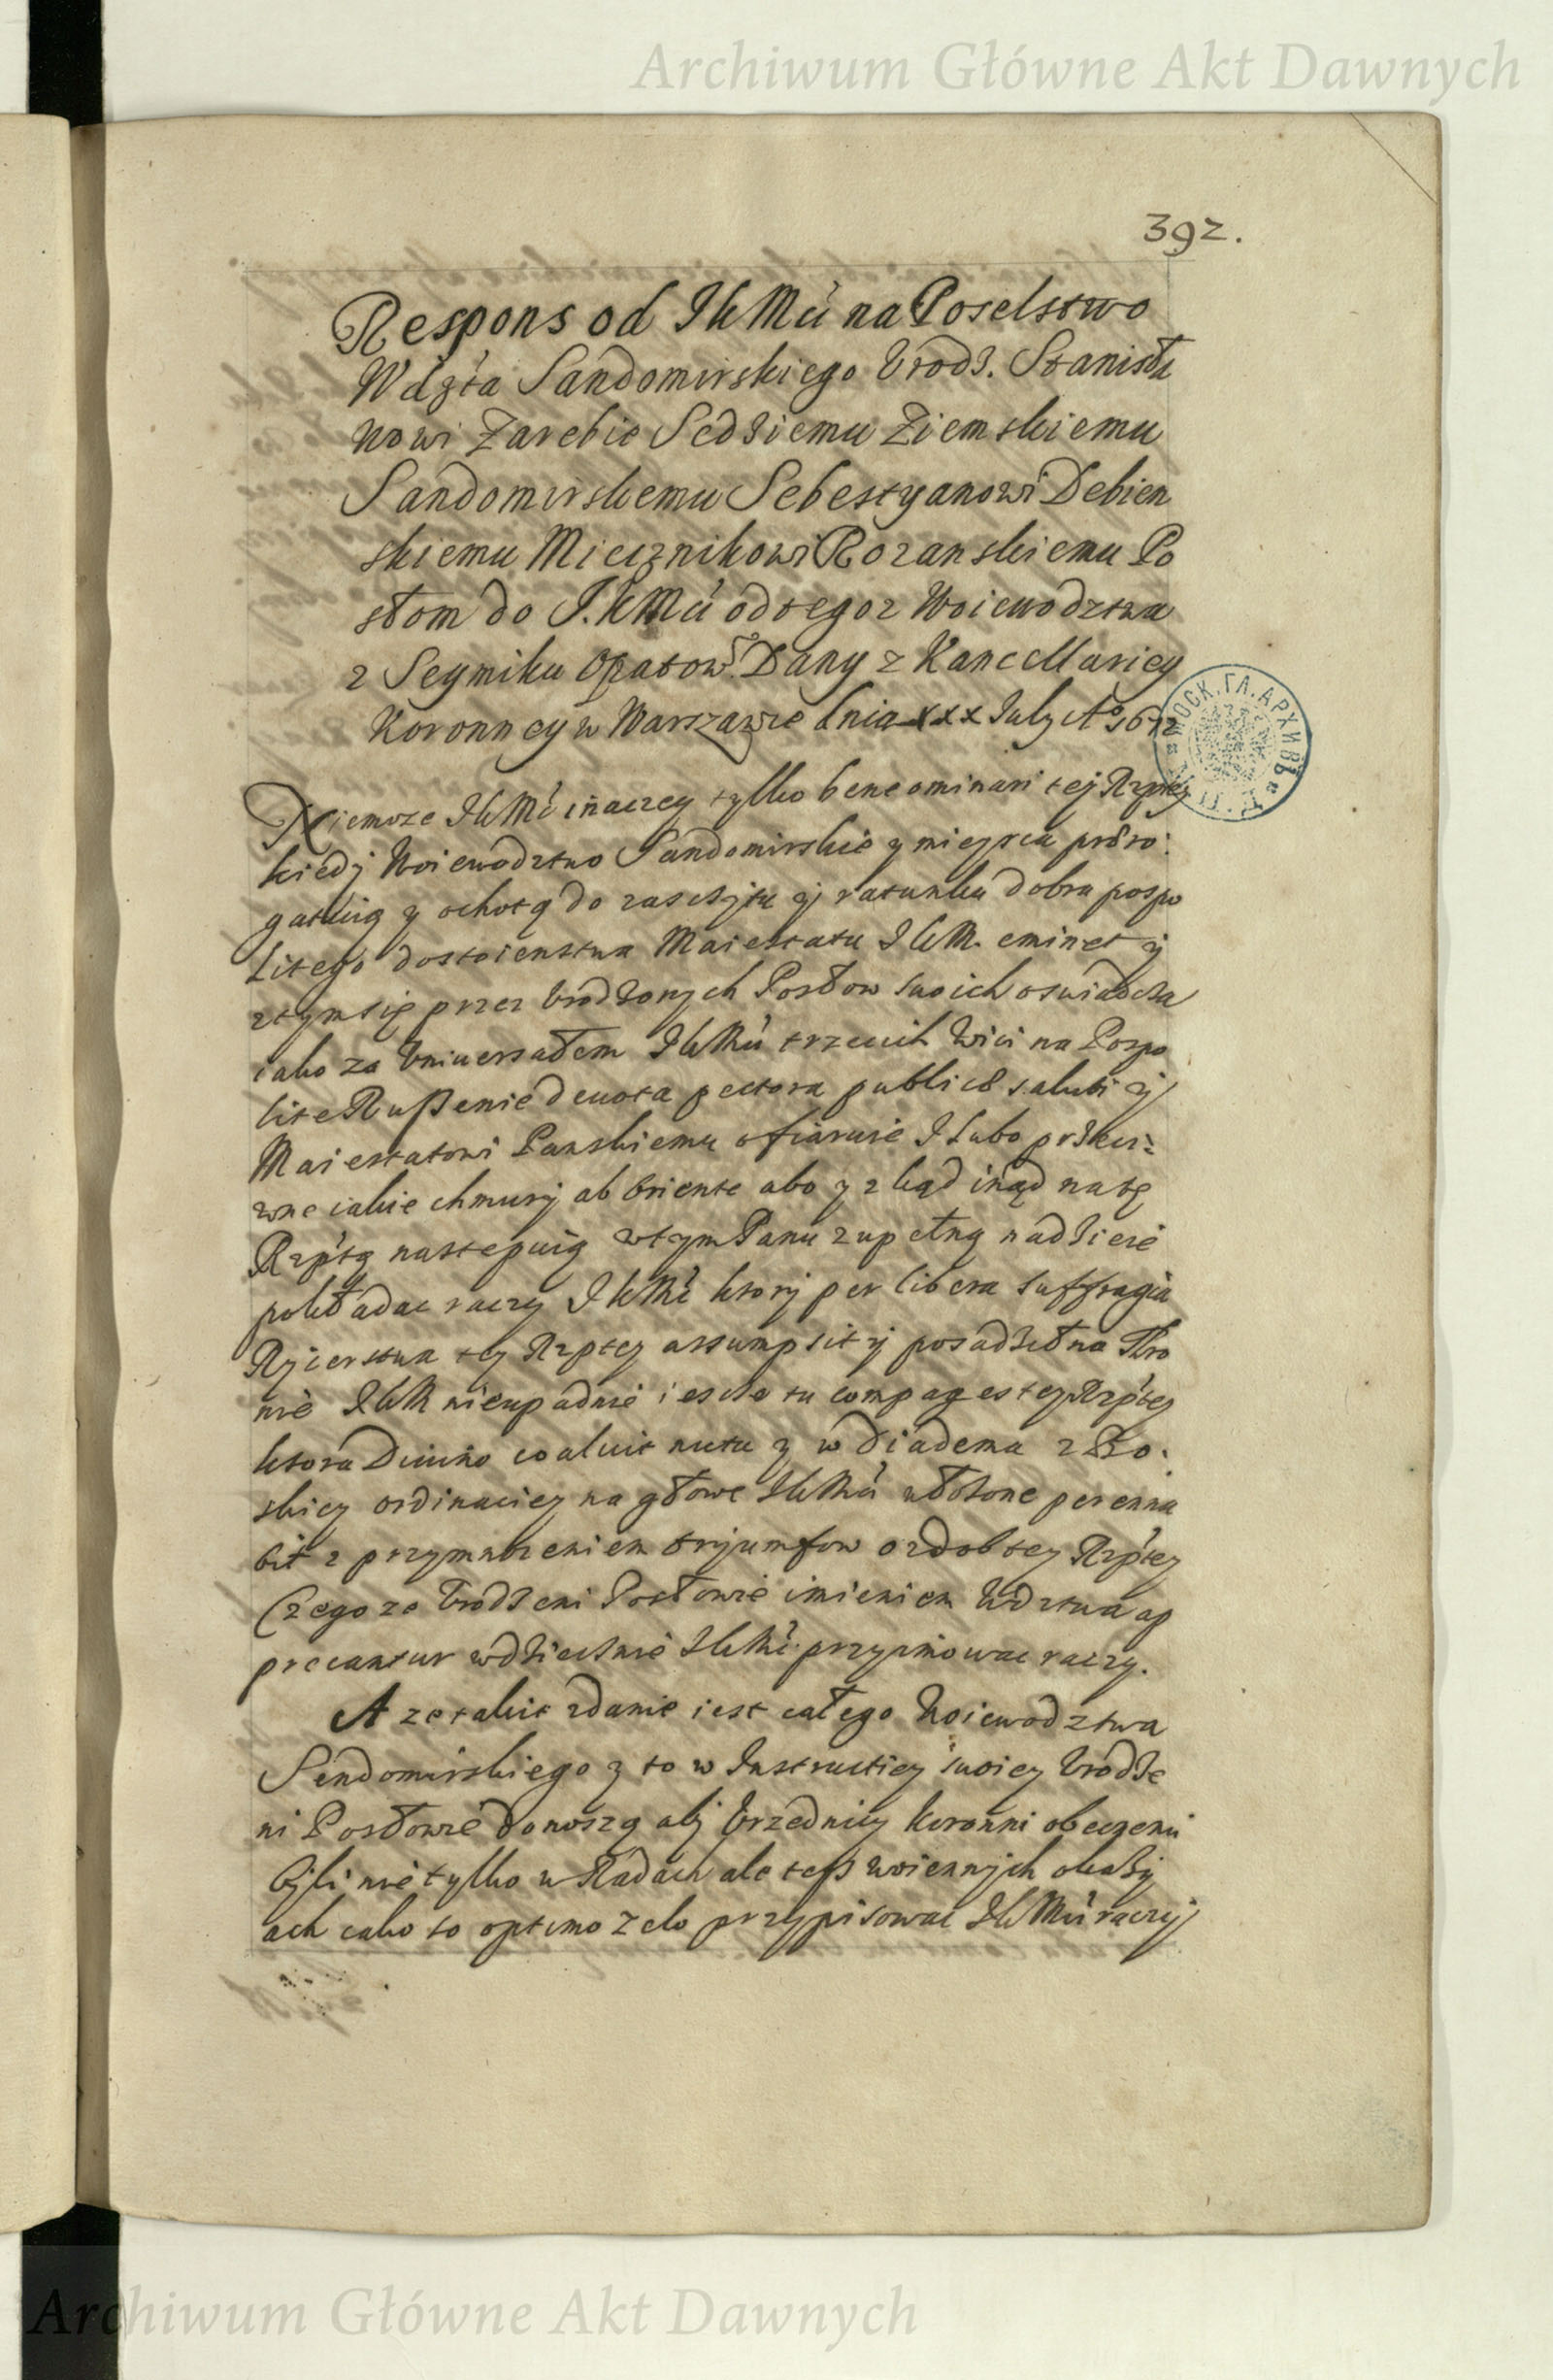 Archiwum Główne Akt Dawnych
392.
Respons od JKMći na Poselstwo
Wdztá Sandomirskiego Vrodz. Stanisła
wowi Zarebie Sedziemu Ziemskiemu
Sandomirskiemu Sebestyanowi Debien
skiemu Miecznikowi Rozanskiemu Po
słom do J.KMći od tegoz Woiewodztwa
z Seymiku Opatows. Dany z Kancellariey
Koronney w Warszawie dnia xxx July Aº 1672
Niemoze JKMć inaczey tylko bene ominari tej Rzptey
kiedj Woiewodztwo Sandomirskie y mieysca
y ochotą do zasczytu ij ratunku dobra pospo
litego dostoienstwa Maiestatu JKM. eminet ij
ztym się przez Vrodzonych Posłow swoich oswiadcza
iako za Vniwersałem JKMći trzecich Wici na Pospo
lite Rußenie deuota pectora publicae saluti ij
Maiestatowi Panskiemu ofiaruie I lubo
iakie chmury ab Oriente abo y z kąd inąd na tę
Rzptą nastepuią w tym Panu zupełną nadzieie
pokładac raczy JKMć ktory per libera suffragia
Rycerstwa tey Rzptey assumpsit ij posadził na Thro
nie JKM nieupadnie iescze ta compages tey Rzptey
ktora Diuino coaluit nutu y w diadema z Bo
skiey ordinaciey na głowe JKMći włozone perenna
bit z przymnozeniem tryumfow ozdob tey Rzptey
Czego ze Vrodzeni Posłowie imieniem Wdztwa ap
precantur wdziecznie JKMć przyimowac raczy.
A ze takie zdanie iest całego Woiewodztwa
Sendomirskiego y to w Instructiey swoiey Vrodze
ni Posłowie donoszą abj Vrzednicy Koronni obeczeni
bjli nie tylko w Radach ale teß woiennych okazy
ach iako to optimo zelo przypisowac JKMć raczij
МОСК. ГЛ. АРХИВЪ
Archiwum Główne Akt Dawnych